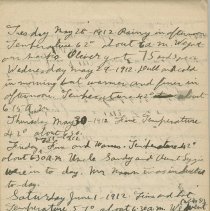 Tuesday May 28 1912 Rainy in afternoon
Temperature 62° about 6 a.m. Went
Plover got 75
Wednesday May 29. 1912. Dull and cold
in morning but warmer and finer in
afternoon. Temperature 42° about
6.15
Thursday May 30 1912 Fine Temperature
42° about
Friday Fine and Warm. Temperature 42°
about 6.30 a.m. Uncle Sandy and Aunt
were in to day. Mr. was in
to day.
Saturday June 1. 1912. Fine and hot
Temperature 57° about 6.30 a.m. We